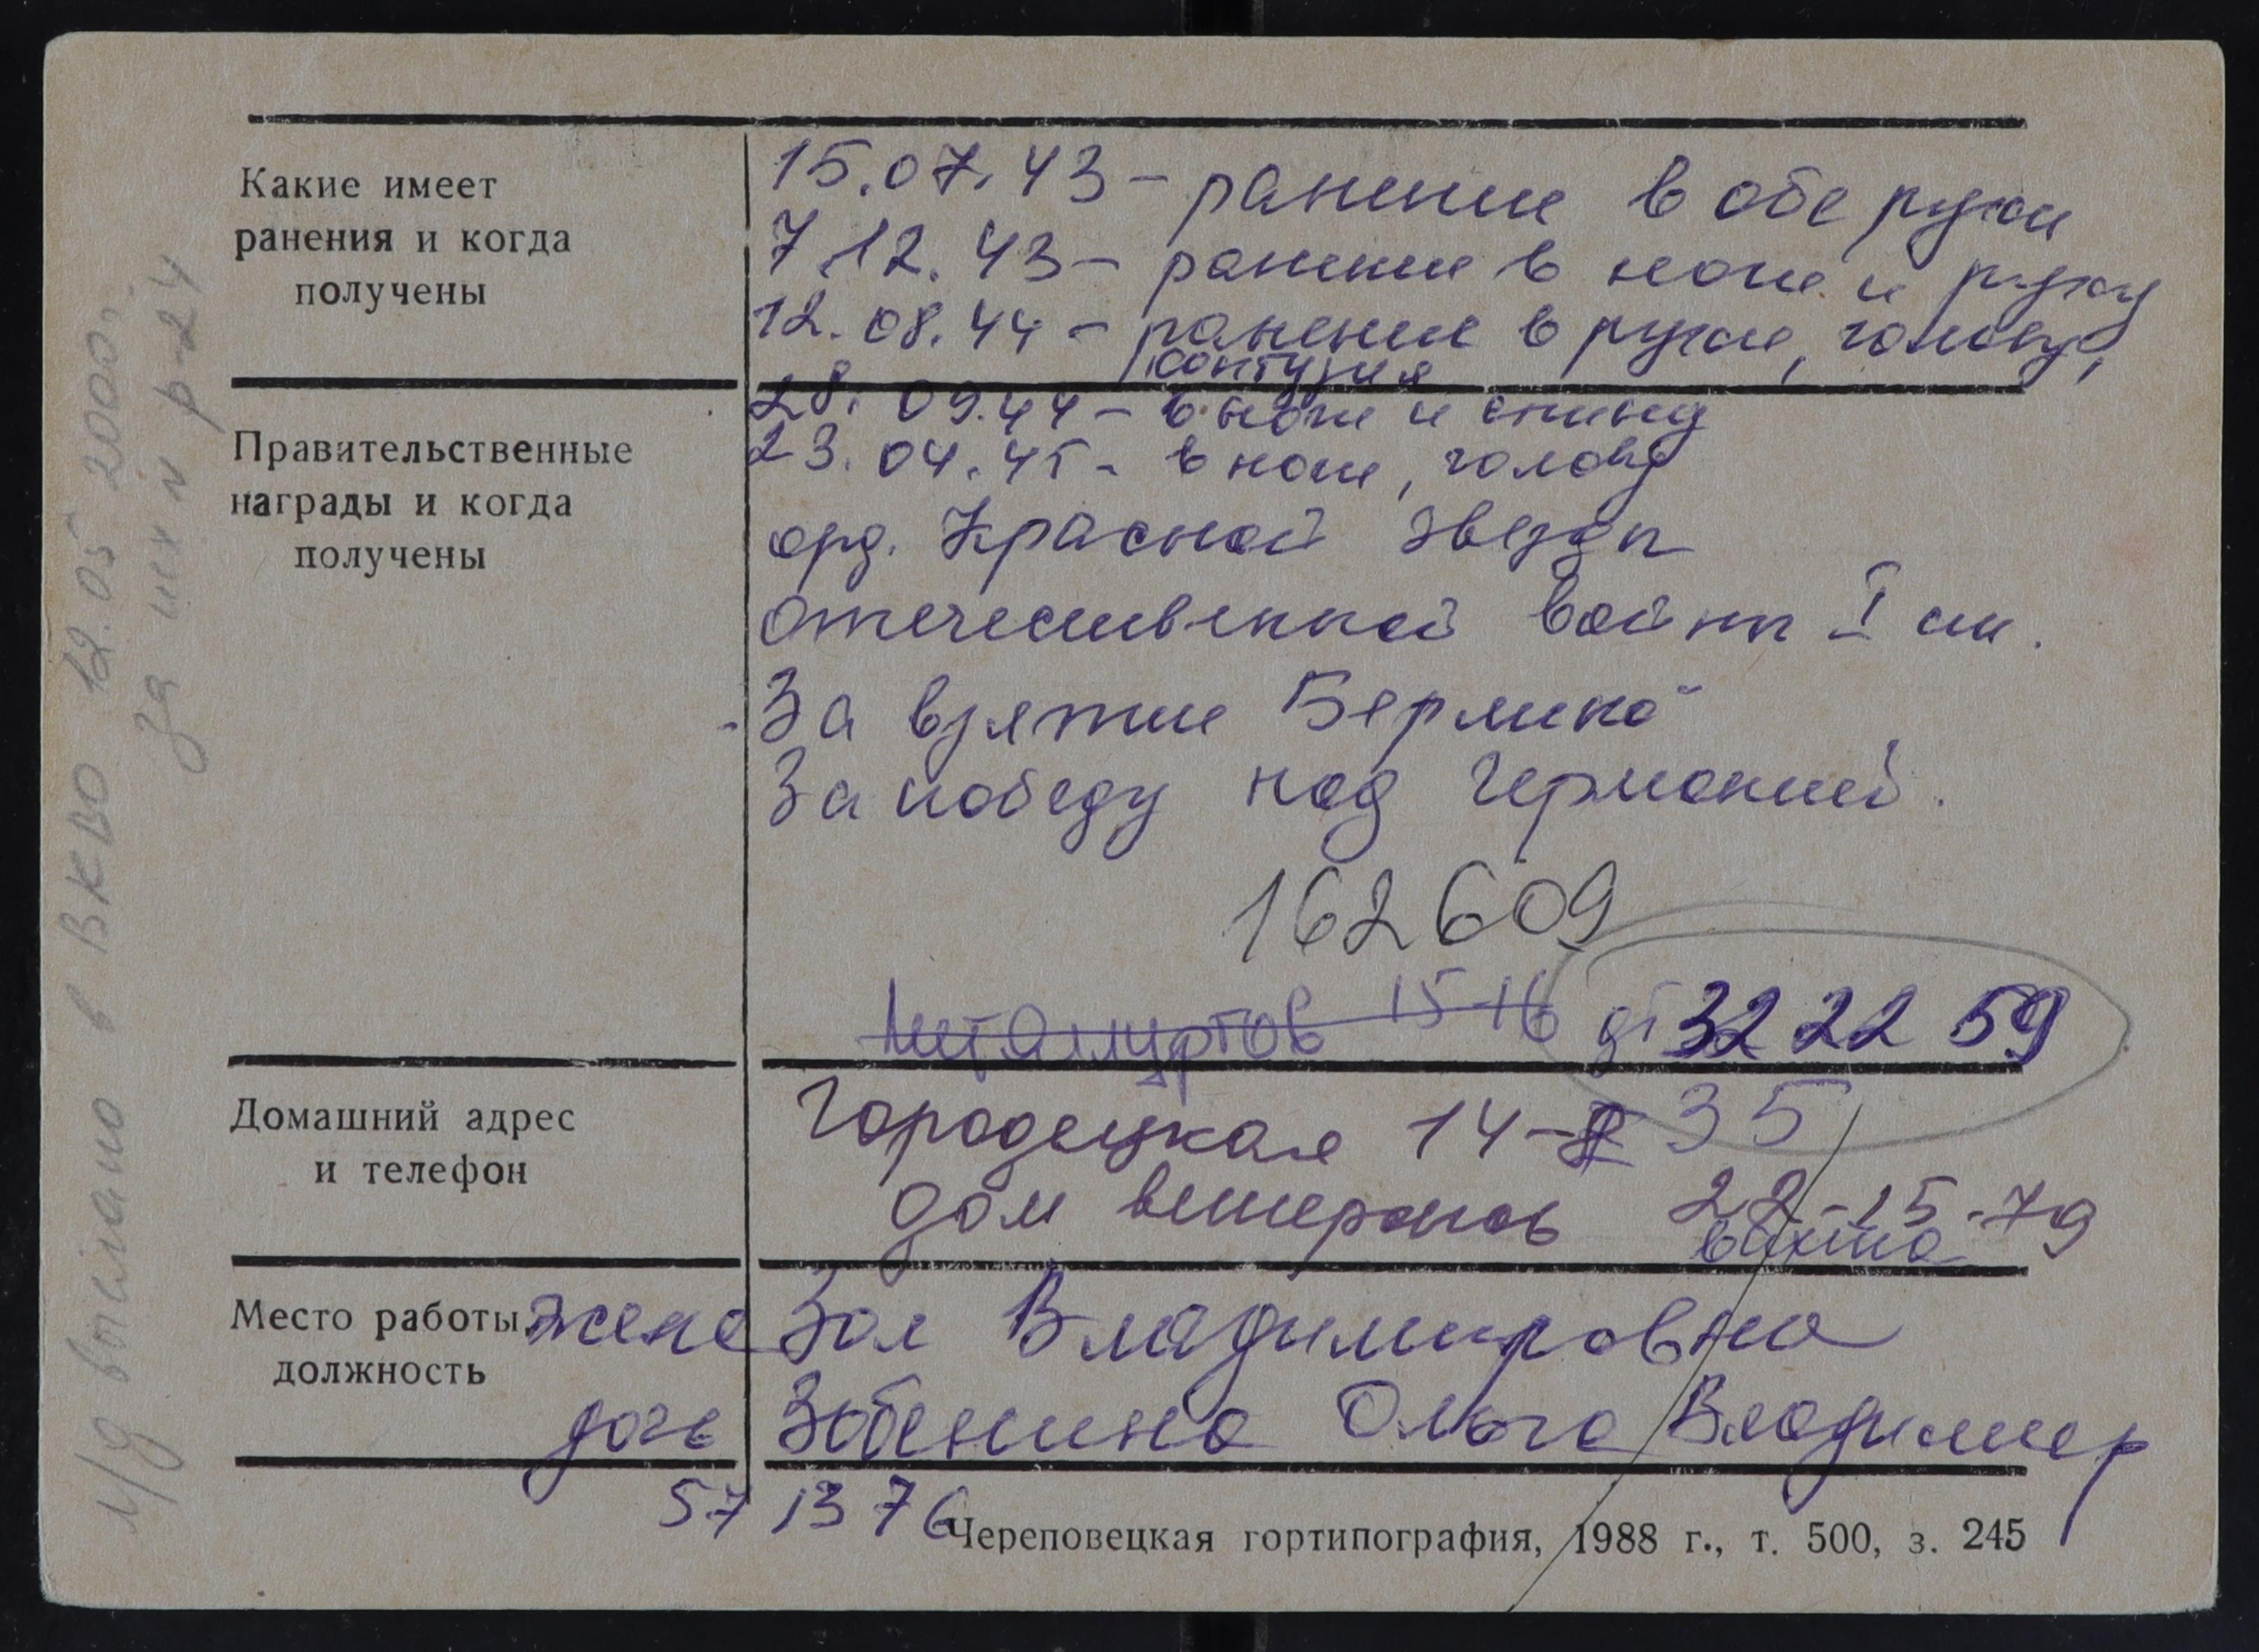 Какие имеет
ранения и когда
получены
15.07.43 - ранение в обе руки
7.12.43 - ранение в ноги и руку
12.08.44 - ранение в руки, голову,
контузия
28.09.44 - в ноги и спину
23.04.45 - в ноги, голову
Правительственные
награды и когда
получены
орд. Красной Звезды
Отечественной войны I ст.
За взятие Берлина
За победу над Германией.
162609
Металлургов 15-16
дт 32 22 59
Домашний адрес
и телефон
Городецкая 14- 35
дом ветеранов 22-15-79
вахта
Место работы,
должность
жена Зоя Владимировна
дочь Зобенина Ольга Владимир
57 13 76
Череповецкая гортипография, 1988 г., т. 500, з. 245
л/д выслано в ВКВО 12.05 2000г.
за исх N р-24